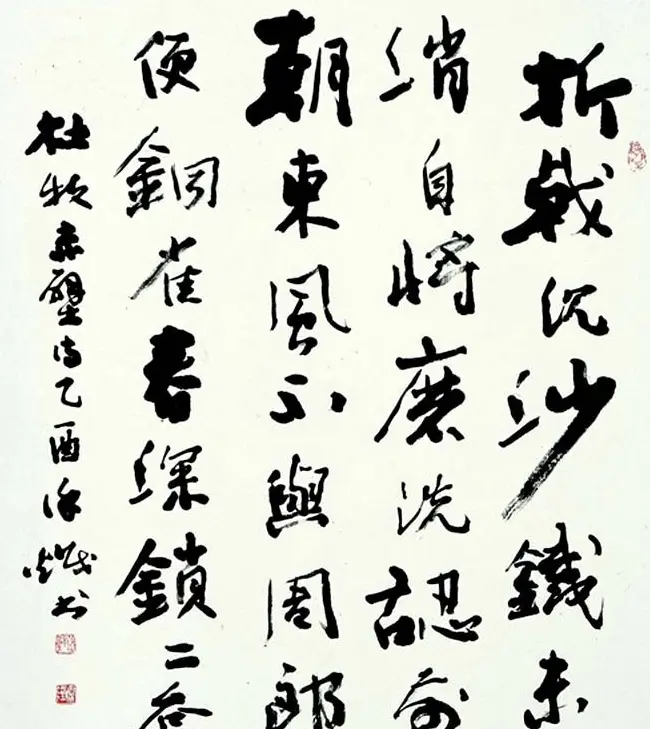 折戟沉沙鐵未
消自將磨洗認前
朝東風不與周郎
便銅雀春深鎖二喬
杜牧赤壁詩乙酉徐書